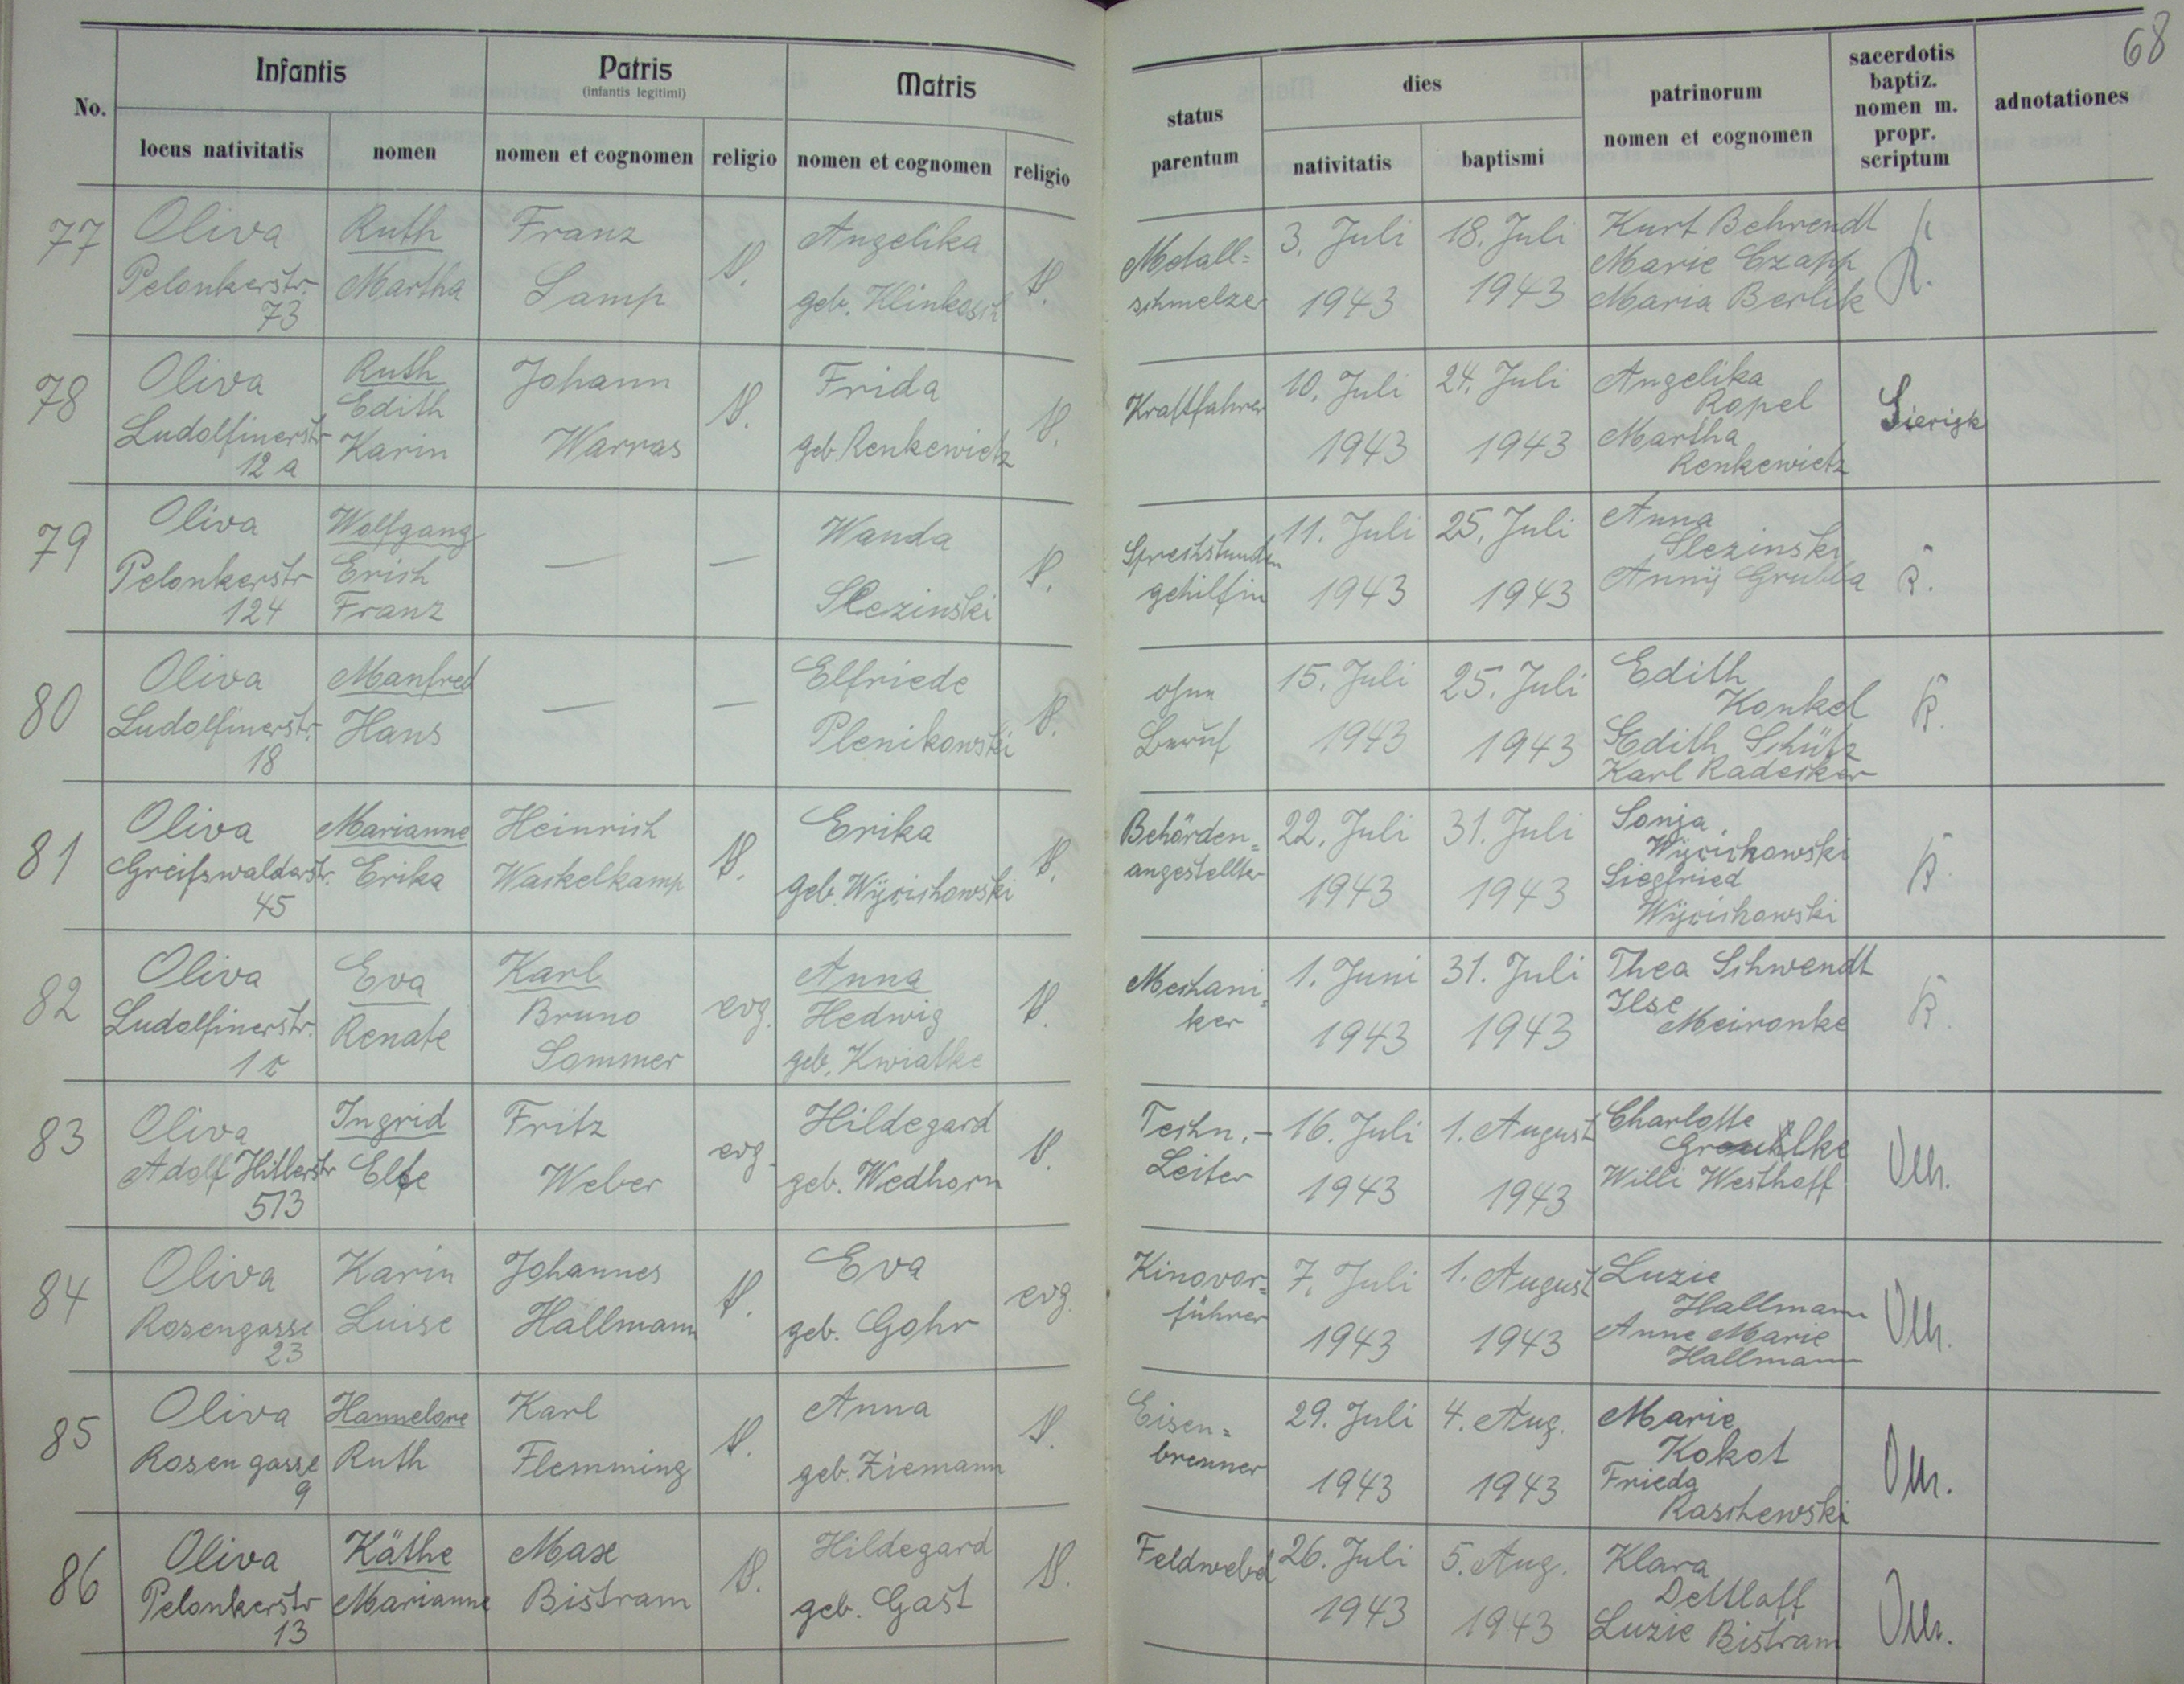 68
Infantis Patris Matris
(infantis legitimi)
No. locus nativitatis nomen nomen et cognomen religio nomen et cognomen religio
status parentum dies nativitatis baptismi patrinorum nomen et cognomen sacerdotis baptiz. nomen m. propr. scriptum adnotationes
77 Oliva Ruth Franz Angelika Metall= 3. Juli 18. Juli Kurt Behrendt
Pelonkerstr. Martha Lamp geb. schmelzer 1943 1943 Marie Czapp
73 Maria Berlik
78 Oliva Ruth Johann Frida Kraftfahrer 10. Juli 24. Juli Angelika
Ludolfinerstr Edith Warras geb. Renkewietz 1943 1943 Ropel
12a Karin Martha
Renkewietz
79 Oliva Wolfgang — — Wanda Sprechstunden 11. Juli 25. Juli Anna
Pelonkerstr Erich Slezinski gehilfin 1943 1943 Slezinski
124 Franz Anny Grubba
80 Oliva Manfred — — Elfriede ohne 15. Juli 25. Juli Edith
Ludolfinerstr. Hans Plenikowski Beruf 1943 1943 Konkel
18 Edith Schütz
Karl
81 Oliva Marianne Heinrich Erika Behörden= 22. Juli 31. Juli Sonja
Greifswalderstr. Erika geb. Wycichowski angestellter 1943 1943 Wycichowski
45 Siegfried
Wycichowski
82 Oliva Eva Karl evg. Anna Mechani= 1. Juni 31. Juli Thea Schwendt
Ludolfinerstr. Renate Bruno Hedwig ker 1943 1943 Ilse
Sommer geb. Kwiatke Meironke
83 Oliva Ingrid Fritz evg. Hildegard Techn.- 16. Juli 1. August Charlotte
Adolf Hitlerstr Weber geb. Wedhorn Leiter 1943 1943
513 Willi Westhoff
84 Oliva Karin Johannes Eva evg. Kinovor= 7. Juli 1. August Luzie
Rosengasse Luise Hallmann geb. Gohr führer 1943 1943 Hallmann
23 Anne Marie
Hallmann
85 Oliva Hannelore Karl Anna Eisen= 29. Juli 4. Aug. Marie
Rosengasse Ruth Flemming geb. Ziemann brenner 1943 1943 Kokot
9 Frieda
Raschewski
86 Oliva Käthe Max Hildegard Feldwebel 26. Juli 5. Aug. Klara
Pelonkerstr Marianne Bistram geb. Gast 1943 1943 Dettlaff
13 Luzie Bistram